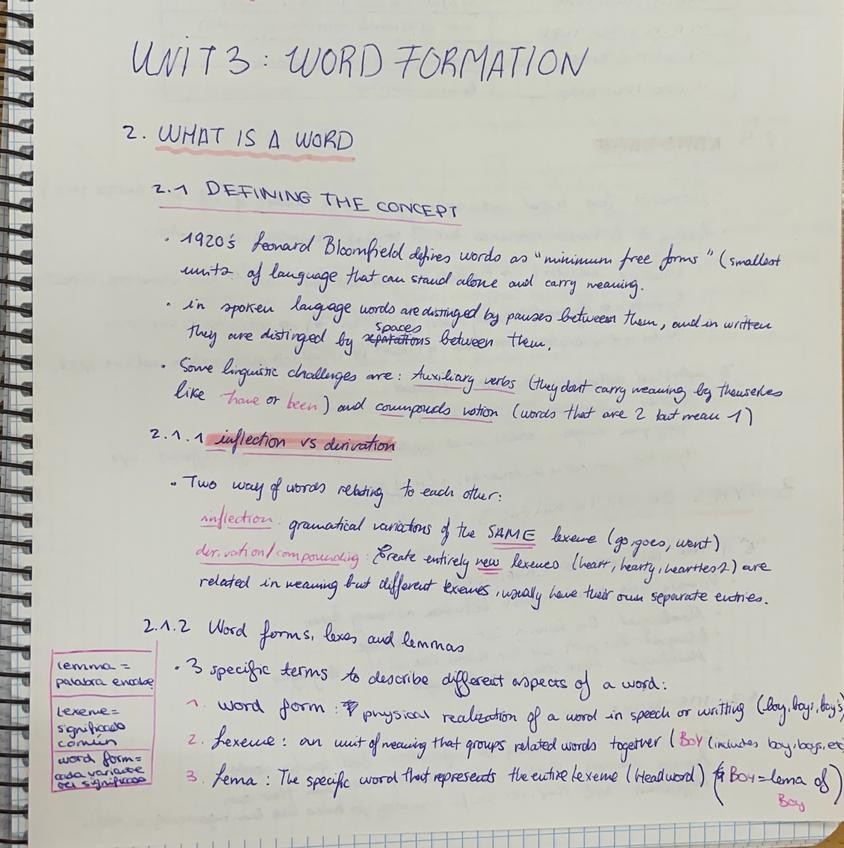 UNIT 3: WORD FORMATION
2. WHAT IS A WORD
2.1 DEFINING THE CONCEPT
• 1920's Leonard Bloomfield defines words as "minimum free forms" (smallest
units of language that can stand alone and carry meaning.
• in spoken language words are distinged by pauses between them, and in written
they are distinged by spaces between them.
• Some linguistic challenges are: Auxiliary verbs (they dont carry meaning by themselves
like have or been) and compounds notion (words that are 2 but mean 1)
2.1.1 inflection vs derivation
• Two way of words relating to each other:
inflection: gramatical variations of the SAME lexeme (go, goes, went)
derivation/compounding: Create entirely new lexemes (heart, hearty, heartless) are
related in meaning but different lexemes, usually have their own separate entries.
2.1.2 Word forms, lexes and lemmas
• 3 specific terms to describe different aspects of a word:
1. word form: physical realization of a word in speech or writting (boy, boys, boy's)
2. Lexeme: an unit of meaning that groups related words together (BOY (includes boy, boys, etc
3. Lema: The specific word that represents the entire lexeme (Headword) (BOY = lema of
Boy)
lemma =
palabra
lexeme =
significado
común
word form =
cada variante
del significado